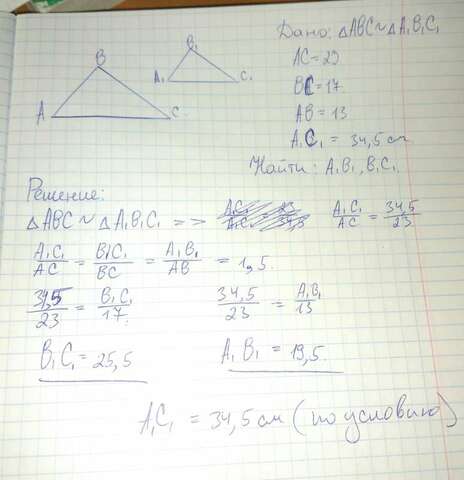 Дано: △ABC ~ △A₁B₁C₁
AC = 23
BC = 17
AB = 13
A₁C₁ = 34,5 см
Найти: A₁B₁, B₁C₁
B
A
C
B₁
A₁
C₁
Решение:
△ABC ~ △A₁B₁C₁ => A₁C₁/AC = 34,5/23
A₁C₁/AC = B₁C₁/BC = A₁B₁/AB = 1,5.
34,5/23 = B₁C₁/17. 34,5/23 = A₁B₁/13
B₁C₁ = 25,5 A₁B₁ = 19,5.
A₁C₁ = 34,5 см (по условию)